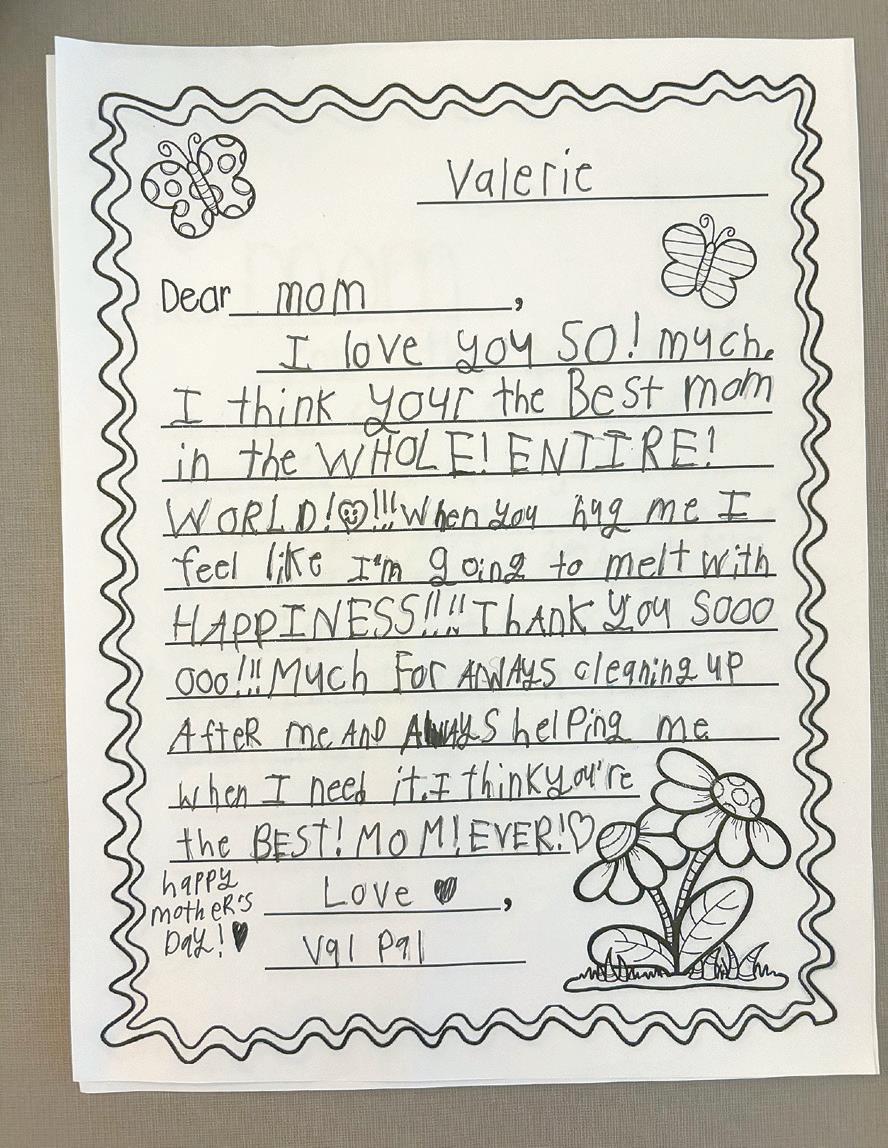 Valerie
Dear mom,
I love you SO! much.
I think your the Best mom
in the WHOLE! ENTIRE!
WORLD!!!! When you hug me I
feel like I'm going to melt with
HAPPINESS!!!! ThANK You Sooo
ooo!!! Much For AlWAYS cleaning up
AfteR me AND AlWAYS helPing me
when I need it. I think you're
the BEST! MOM! EVER!♡
happy
motheR's
Day!♥
Love ♥,
Val Pal